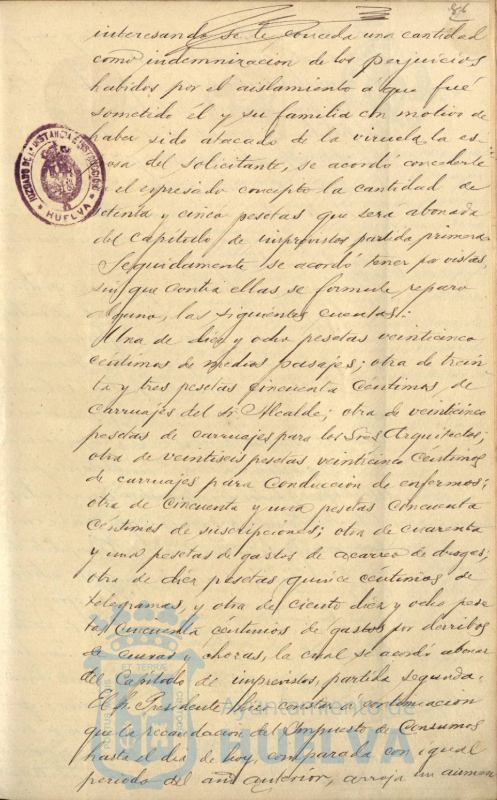 86
interesando se le conceda una cantidad
como indemnizacion de los perjuicios
habidos por el aislamiento á que fué
sometido él y su familia con motivo de
haber sido atacado de la viruela la es-
posa del solicitante, se acordó concederle
el expresado concepto la cantidad de
y cinco pesetas que será abonada
del capítulo de imprevistos partida primera.
Seguidamente se acordó tener por vistas,
sin que contra ellas se formule reparo
alguno, las siguientes cuentas:
Una de diez y ocho pesetas veinticinco
céntimos de medios pasajes; otra de trein
ta y tres pesetas cincuenta céntimos de
carruajes del Sr. Alcalde; otra de veinticinco
pesetas de carruajes para los Sres Arquitectos;
otra de veintiseis pesetas veinticinco céntimos
de carruajes para conduccion de enfermos;
otra de cincuenta y una pesetas cincuenta
céntimos de suscripciones; otra de cuarenta
y una pesetas de gastos de acarreo de drogas;
otra de diez pesetas quince céntimos de
telegramas, y otra de ciento diez y ocho pese
tas cincuenta céntimos de gastos por derribos
de cuevas y chozas, la cual se acordó abonar
del Capítulo de imprevistos, partida segunda.
El Sr. Presidente hizo constar a continuacion
que la recaudacion del Impuesto de Consumos
hasta el dia de hoy, comparada con igual
periodo del año anterior, arroja un aumen
JUZGADO DE 1ª INSTANCIA É INSTRUCCION
HUELVA
Ayuntamiento de
HUELVA